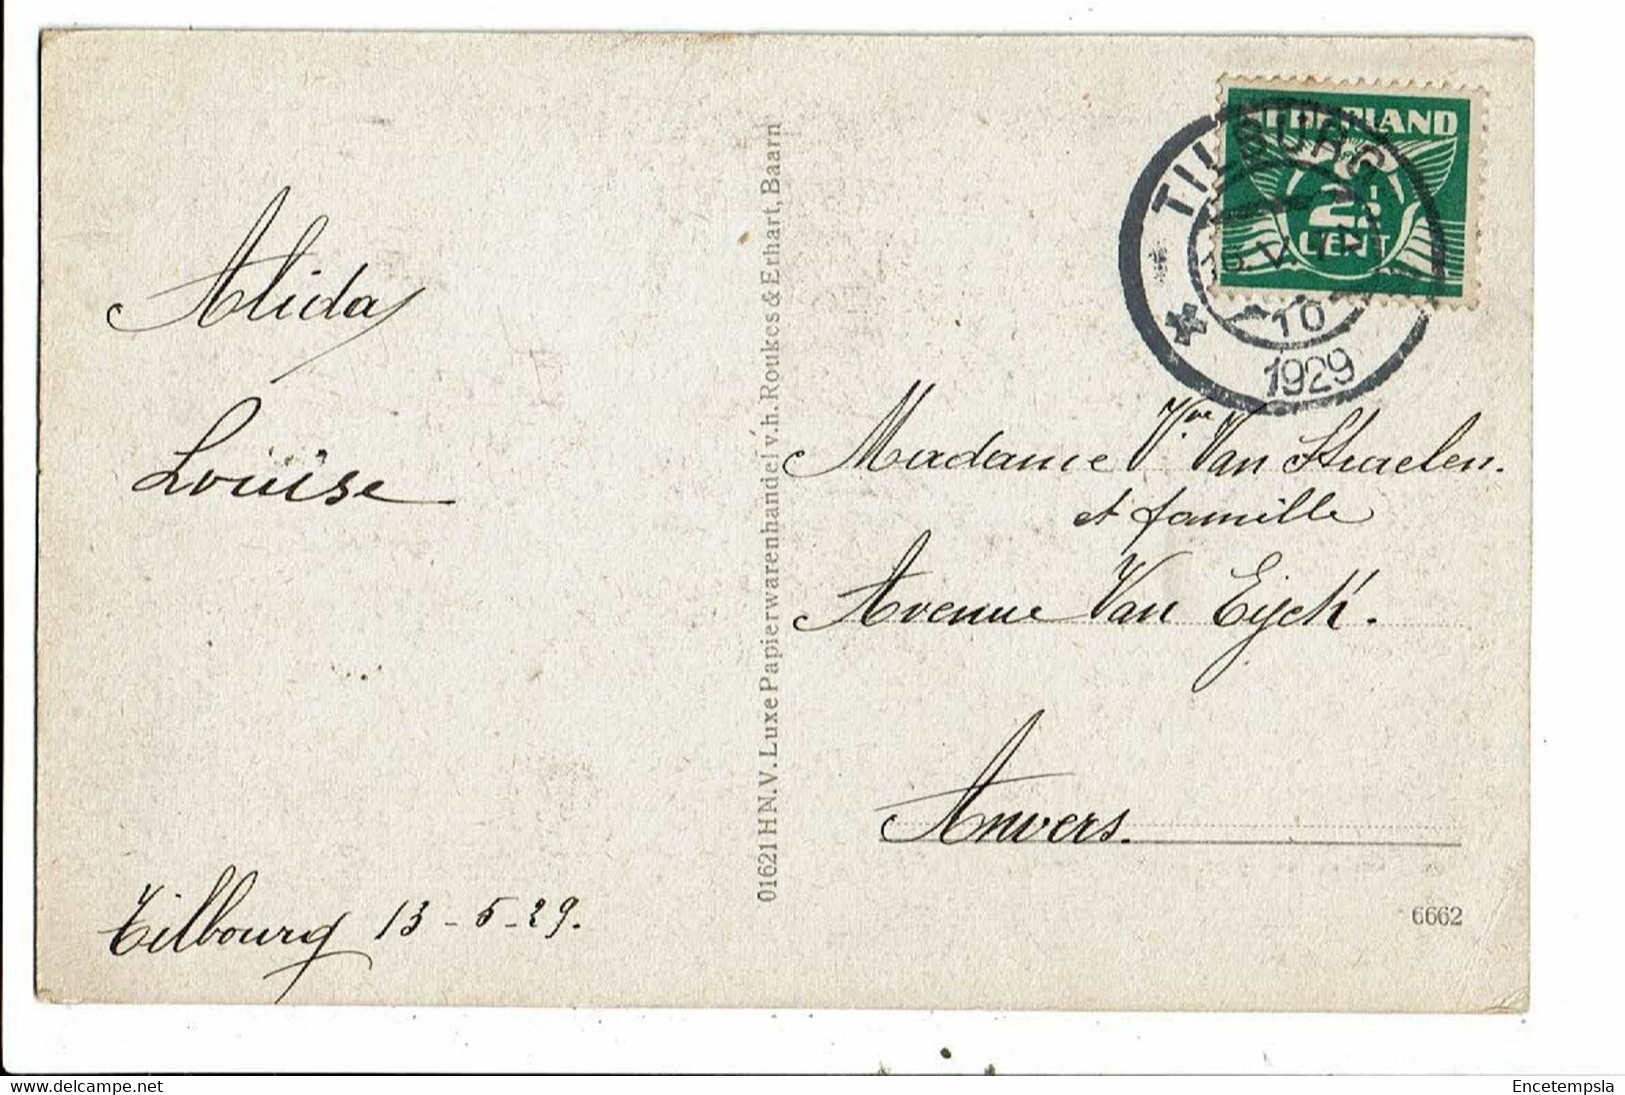 Alida
Louise
Tilbourg 13-5-29.
01621 H N.V. Luxe Papierwarenhandel v.h. Roukes & Erhart, Baarn
NEDERLAND
2½
CENT
TILBURG
10
1929
Madame Vve Van Straelen.
et famille
Avenue Van Eyck.
Anvers.
6662
Encetempsla